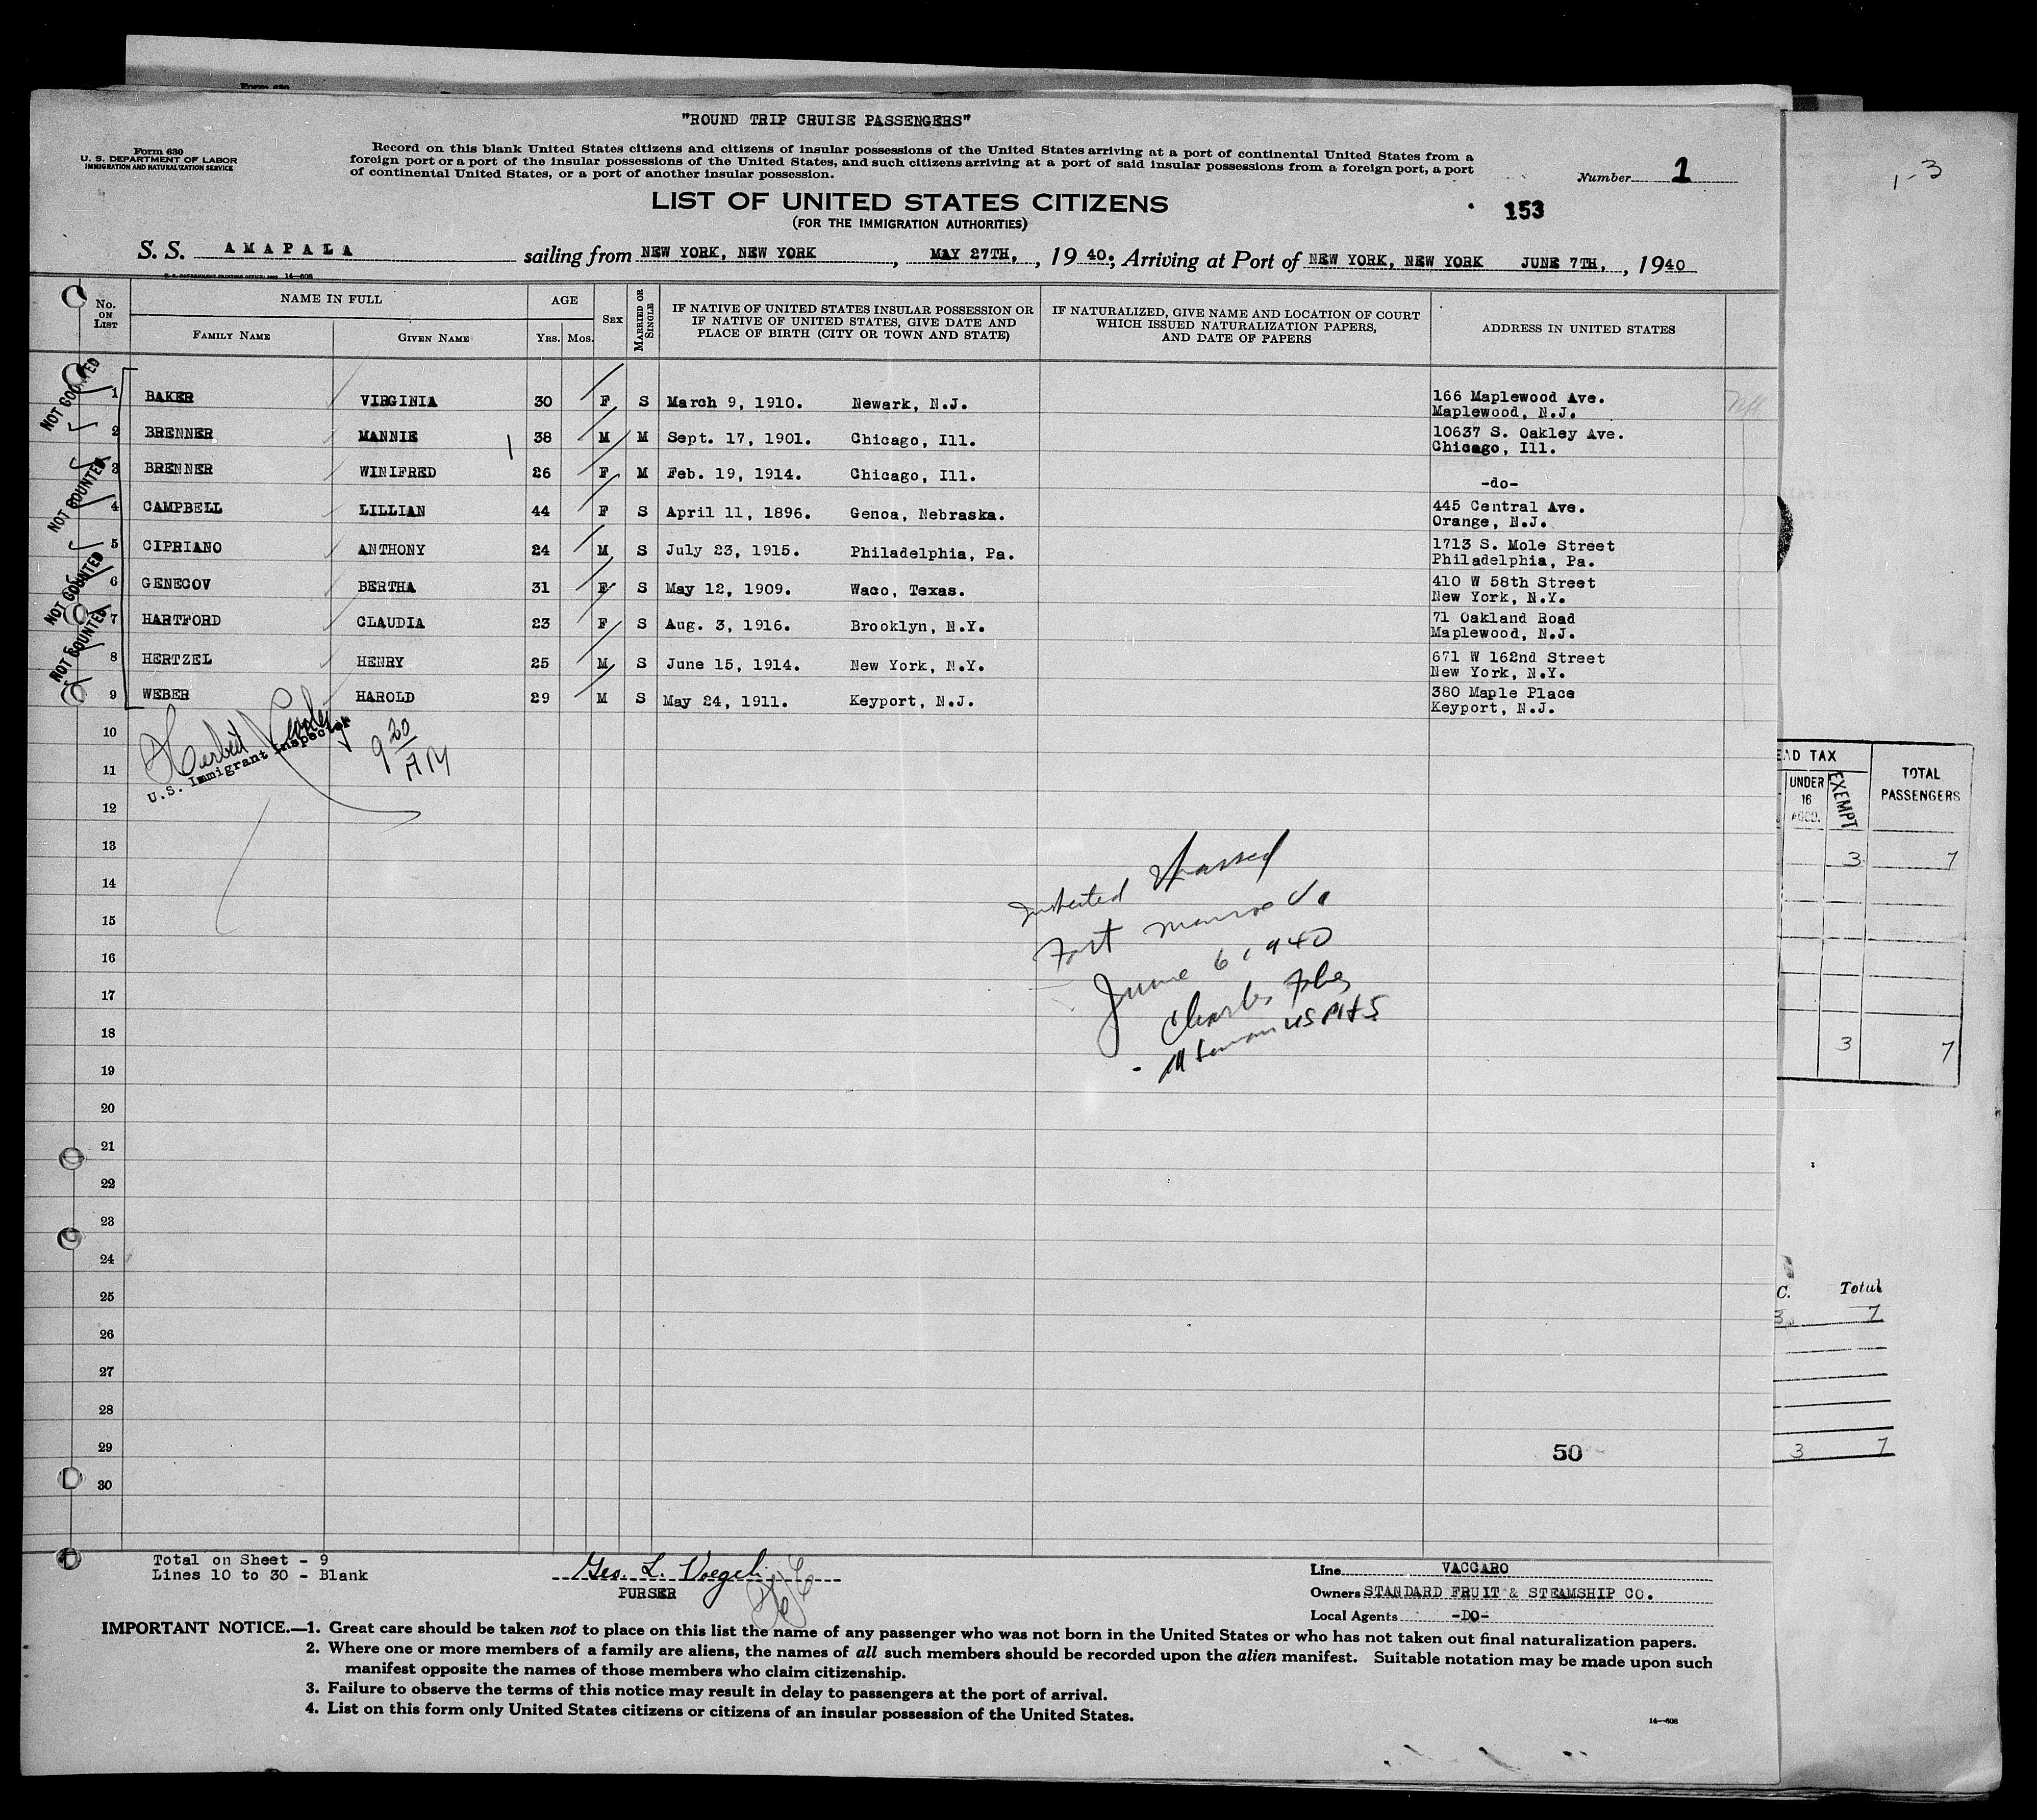 "ROUND TRIP CRUISE PASSENGERS"
Form 630
U. S. DEPARTMENT OF LABOR
IMMIGRATION AND NATURALIZATION SERVICE
Record on this blank United States citizens and citizens of insular possessions of the United States arriving at a port of continental United States from a
foreign port or a port of the insular possessions of the United States, and such citizens arriving at a port of said insular possessions from a foreign port, a port
of continental United States, or a port of another insular possession.
Number 1
1-3
LIST OF UNITED STATES CITIZENS
(FOR THE IMMIGRATION AUTHORITIES)
153
S. S. AMAPALA sailing from NEW YORK, NEW YORK, MAY 27TH, , 1940; Arriving at Port of NEW YORK, NEW YORK JUNE 7TH, , 1940
14—608
No. ON LIST
NAME IN FULL
FAMILY NAME
GIVEN NAME
AGE
YRS. MOS.
SEX
MARRIED OR SINGLE
IF NATIVE OF UNITED STATES INSULAR POSSESSION OR
IF NATIVE OF UNITED STATES, GIVE DATE AND
PLACE OF BIRTH (CITY OR TOWN AND STATE)
IF NATURALIZED, GIVE NAME AND LOCATION OF COURT
WHICH ISSUED NATURALIZATION PAPERS,
AND DATE OF PAPERS
ADDRESS IN UNITED STATES
NOT COUNTED
NOT COUNTED
NOT COUNTED
NOT COUNTED
1 BAKER VIRGINIA 30 F S March 9, 1910. Newark, N.J. 166 Maplewood Ave.
Maplewood, N.J.
2 BRENNER MANNIE 38 M M Sept. 17, 1901. Chicago, Ill. 10637 S. Oakley Ave.
Chicago, Ill.
3 BRENNER WINIFRED 26 F M Feb. 19, 1914. Chicago, Ill. -do-
4 CAMPBELL LILLIAN 44 F S April 11, 1896. Genoa, Nebraska. 445 Central Ave.
Orange, N.J.
5 CIPRIANO ANTHONY 24 M S July 23, 1915. Philadelphia, Pa. 1713 S. Mole Street
Philadelphia, Pa.
6 GENECOV BERTHA 31 F S May 12, 1909. Waco, Texas. 410 W 58th Street
New York, N.Y.
7 HARTFORD CLAUDIA 23 F S Aug. 3, 1916. Brooklyn, N.Y. 71 Oakland Road
Maplewood, N.J.
8 HERTZEL HENRY 25 M S June 15, 1914. New York, N.Y. 671 W 162nd Street
New York, N.Y.
9 WEBER HAROLD 29 M S May 24, 1911. Keyport, N.J. 380 Maple Place
Keyport, N.J.
10
11
12
13
14
15
16
17
18
19
20
21
22
23
24
25
26
27
28
29
30
Herbert
U.S. Immigrant Inspector
9 20 AM
Passed
Fort Monroe Va
June 6 1940
Charles
USPHS
50
EAD TAX
UNDER 16
EXEMPT
TOTAL PASSENGERS
3 7
3 7
C. Total
3 7
3 7
Total on Sheet - 9
Lines 10 to 30 - Blank
Geo. L. Voegeli
PURSER
Line VACCARO
Owners STANDARD FRUIT & STEAMSHIP CO.
Local Agents -DO-
IMPORTANT NOTICE.—1. Great care should be taken not to place on this list the name of any passenger who was not born in the United States or who has not taken out final naturalization papers.
2. Where one or more members of a family are aliens, the names of all such members should be recorded upon the alien manifest. Suitable notation may be made upon such
manifest opposite the names of those members who claim citizenship.
3. Failure to observe the terms of this notice may result in delay to passengers at the port of arrival.
4. List on this form only United States citizens or citizens of an insular possession of the United States.
14—608